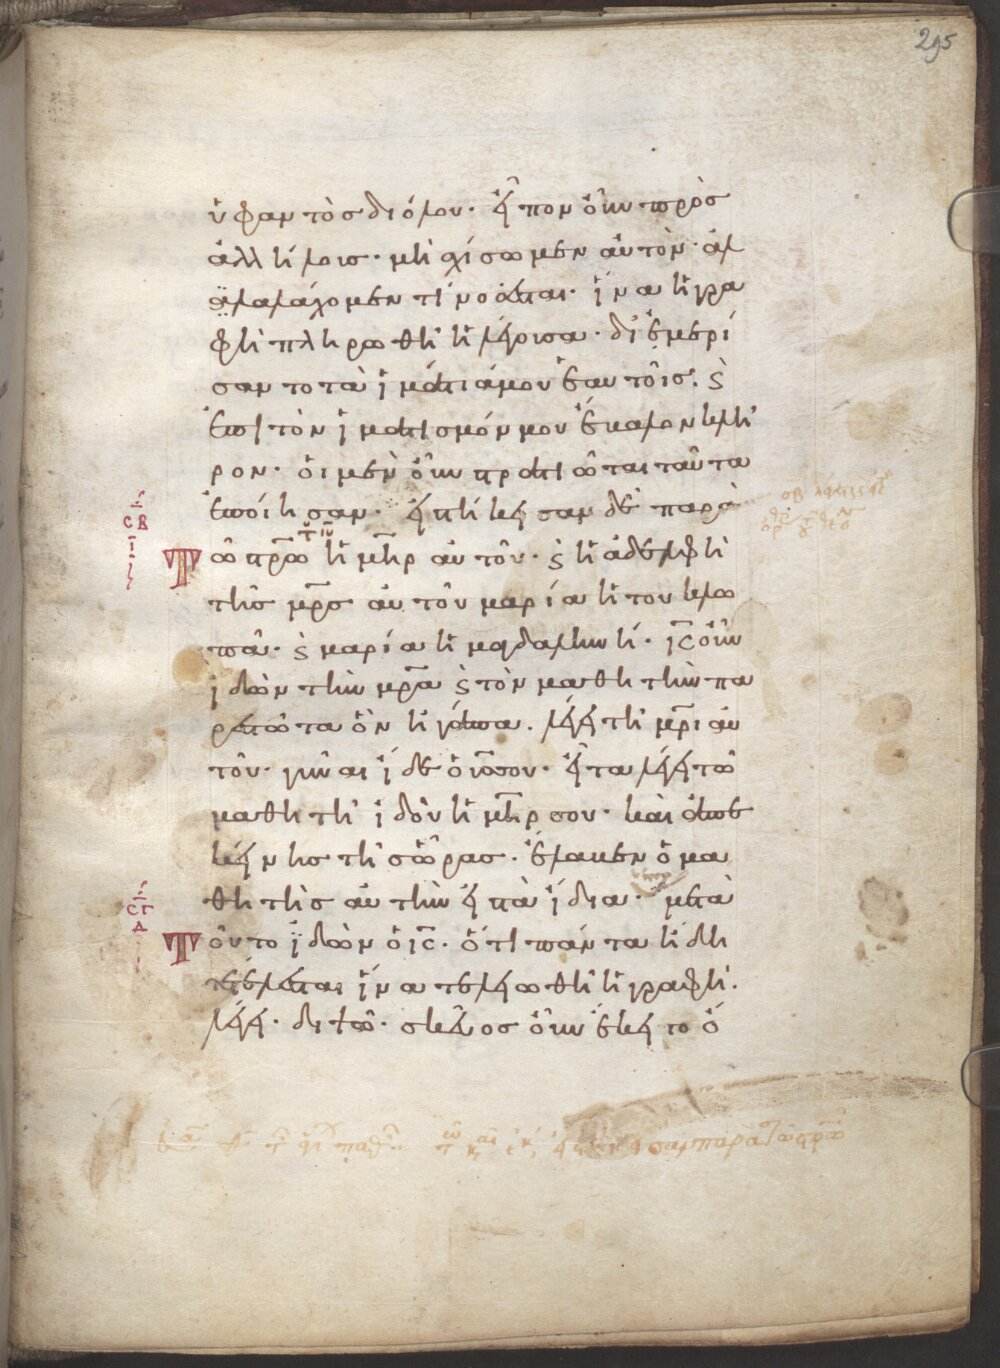 295
ὑφαντὸσ διόλου· εἶπον οὖν πρὸσ
ἀλλήλοισ· μὴ σχίσωμεν αὐτὸν· ἀλ
αλαλάχομεν τίνοσ ἔσται· ἵνα ἡ γρα
φὴ πληρωθῆ ἡ λέγουσα· διεμερί
σαντο τὰ ἱμάτιά μου ἑαυτοῖσ· ϛ
ἐπὶ τὸν ἱματισμόν μου ἔβαλον κλῆ
ρον· οἱ μὲν οὖν στρατιῶται ταῦτα
ἐποίησαν· εἱστήκεισαν δὲ παρὰ
Τῶ στρῶ τοῦ ιυ ἡ μηρ αὐτοῦ· ϛ ἡ ἀδελφὴ
τῆσ μρσ αὐτοῦ μαρία ἡ τοῦ κλω
πᾶ· ϛ μαρία ἡ μαγδαληνή· ις οὖν
ἰδὼν τὴν μρα ϛ τὸν μαθητὴν πα
ρεστῶτα ὃν ἠγάπα· λέγει τῆ μρι αὐ
τοῦ· γύναι ἴδε ὁ υσ σου· εἶτα λέγει τῶ
μαθητῆ ἰδοὺ ἡ μηρ σου· καὶ ἀπ ἐ
κείνησ τῆσ ὥρασ· ἔλαβεν ὁ μα
θητὴσ αὐτὴν εἰσ τὰ ἴδια· μετὰ
Τοῦτο ἰδὼν ὁ ις· ὅτι πάντα ἤδη
τετέλεσται ἵνα τελειωθῆ ἡ γραφὴ·
λέγει· διψῶ· σκεῦος οὖν ἔκειτο ὄ
ϲβ
ι
ϲγ
α